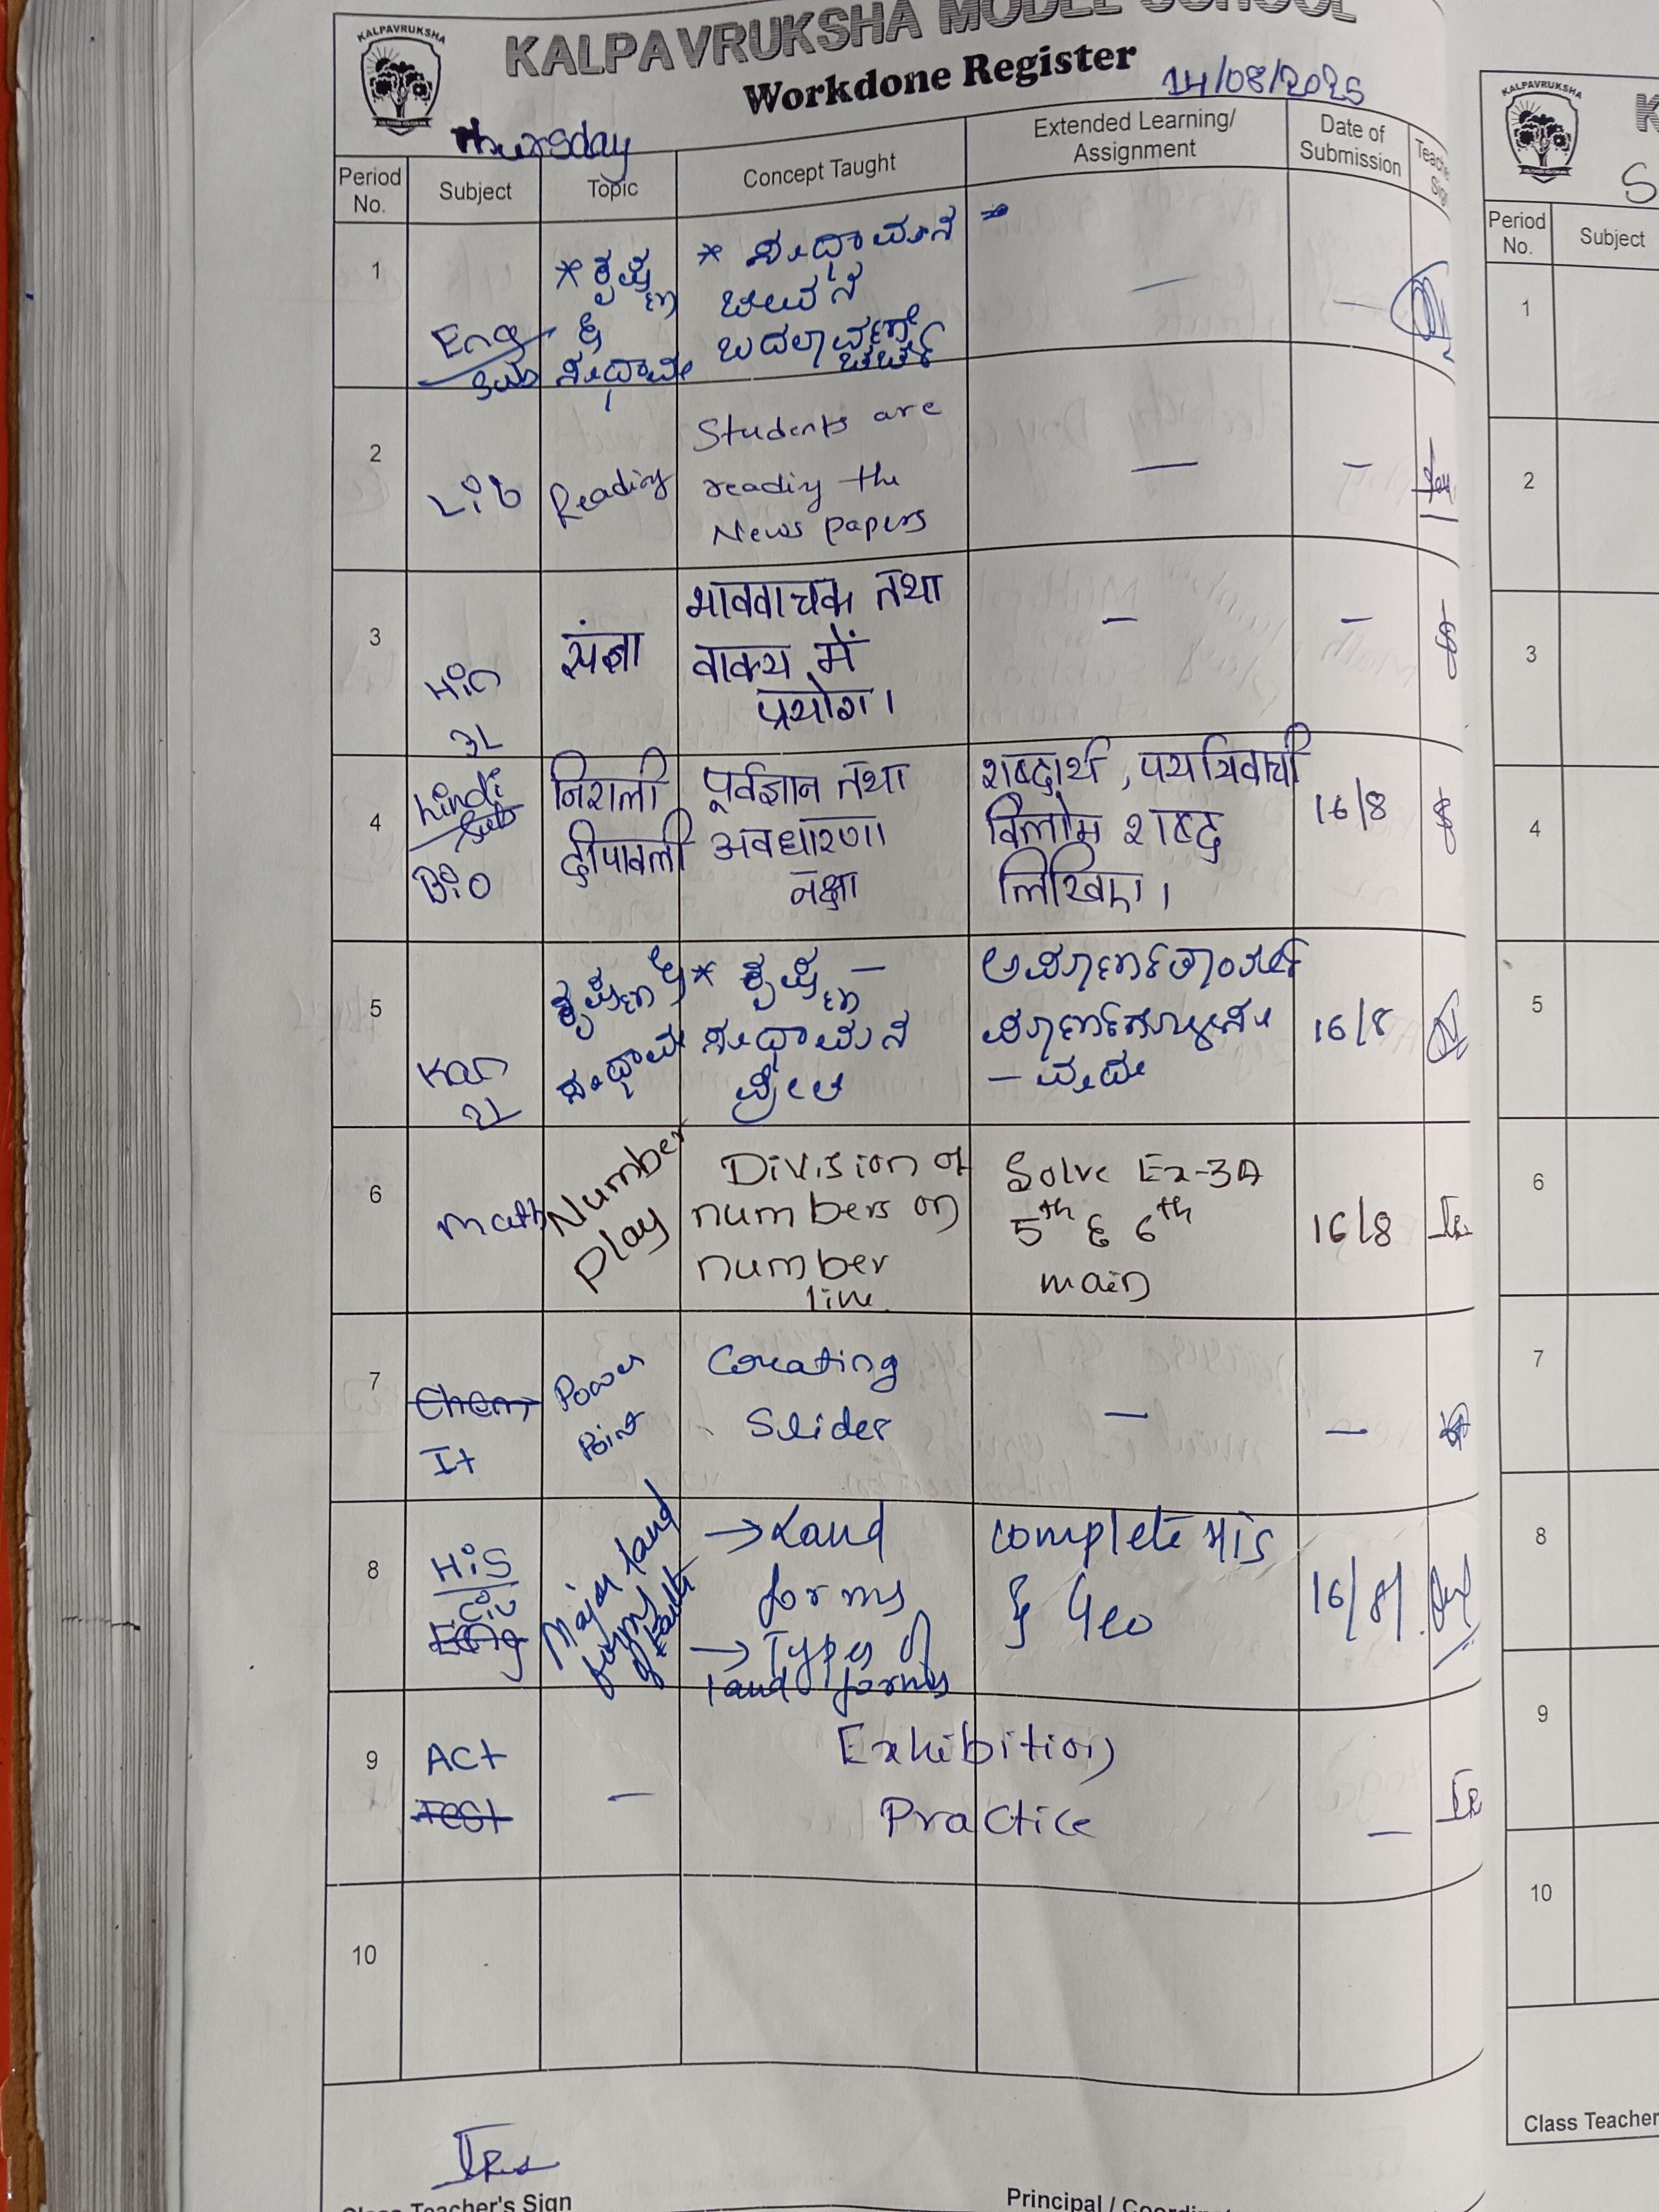 KALPAVRUKSHA
KALPAVRUKSHA MODEL SCHOOL
Workdone Register
14/08/2025
Thursday
Period No.
Subject
Topic
Concept Taught
Extended Learning/
Assignment
Date of
Submission
1
Eng
* ಕೃಷ್ಣ
* ಸುಧಾಮನ
ಜೀವನ
—
—
2
Lib
Reading
Students are
reading the
News papers
—
—
3
Hin
3L
संज्ञा
भाववाचक तथा
वाक्य में
प्रयोग।
—
—
4
hindi
Sub
Bio
निराली
दीपावली
पूर्वज्ञान तथा
अवधारणा
नक्षा
शब्दार्थ, पर्यायवाची
विलोम शब्द
लिखिए।
16/8
5
Kan
2L
* ಕೃಷ್ಣ —
ಸುಧಾಮನ
16/8
6
Math
Number
Play
Division of
numbers on
number
line
Solve Ex-3A
5th & 6th
main
16/8
7
Chem
It
Power
Point
Creating
Slider
—
—
8
His
Civ
Eng
Major land
forms
of Earth
→ Land
forms
→ Types of
land forms
complete His
& Geo
16/8/
9
ACt
Test
—
Exhibition
Practice
—
10
Class Teacher's Sign
Principal /
KALPAVRUKSHA
K
S
Period
No.
Subject
1
2
3
4
5
6
7
8
9
10
Class Teacher